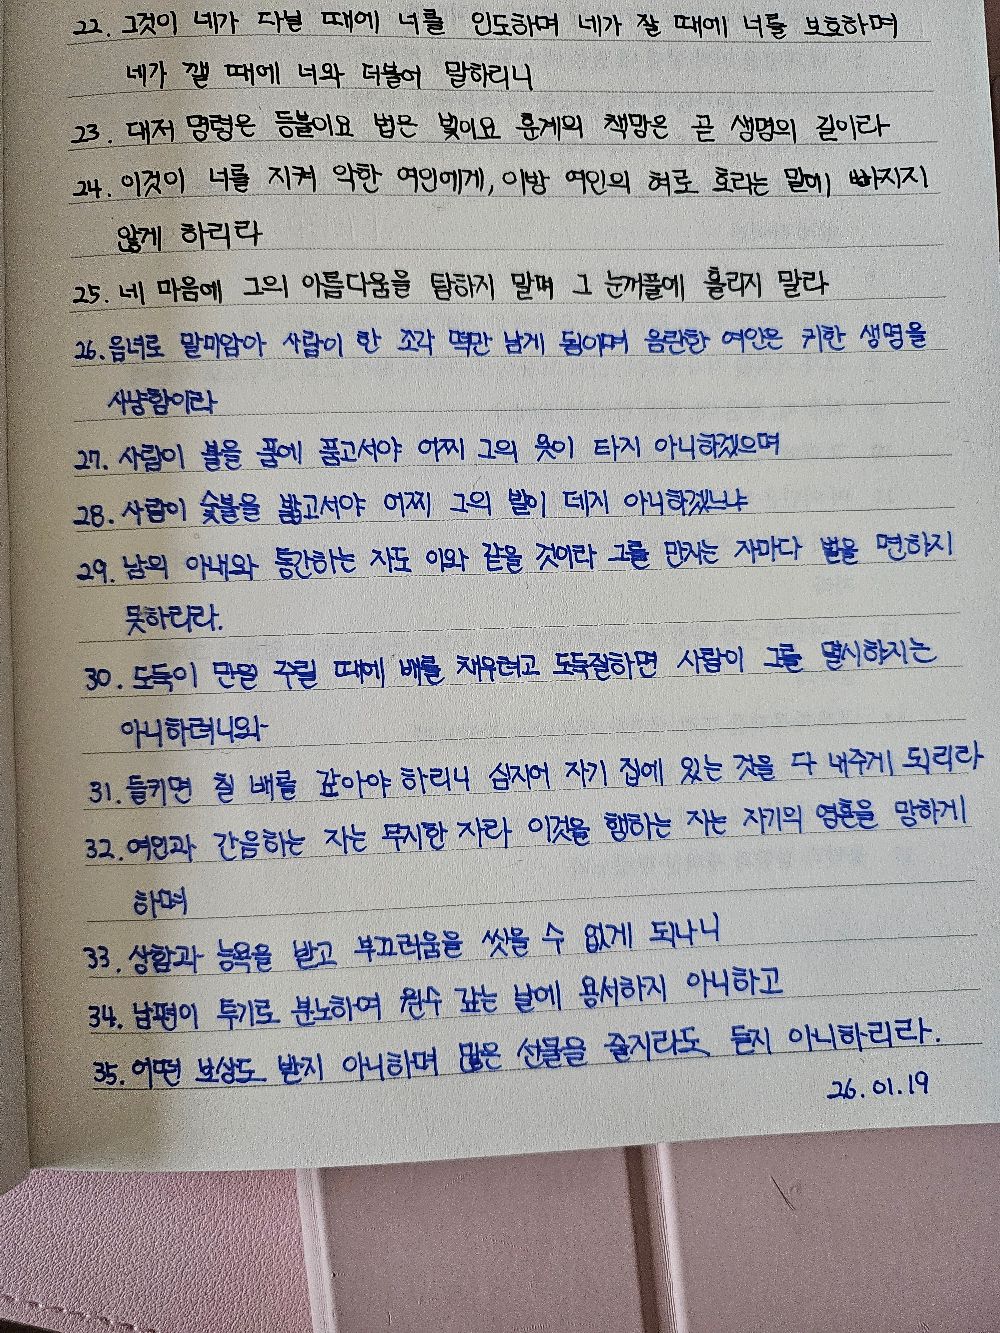 22. 그것이 네가 다닐 때에 너를 인도하며 네가 잘 때에 너를 보호하며
네가 깰 때에 너와 더불어 말하리니
23. 대저 명령은 등불이요 법은 빛이요 훈계의 책망은 곧 생명의 길이라
24. 이것이 너를 지켜 악한 여인에게, 이방 여인의 혀로 호리는 말에 빠지지
않게 하리라
25. 네 마음에 그의 아름다움을 탐하지 말며 그 눈꺼풀에 홀리지 말라
26. 음녀로 말미암아 사람이 한 조각 떡만 남게 됨이며 음란한 여인은 귀한 생명을
사냥함이라
27. 사람이 불을 품에 품고서야 어찌 그의 옷이 타지 아니하겠으며
28. 사람이 숯불을 밟고서야 어찌 그의 발이 데지 아니하겠느냐
29. 남의 아내와 통간하는 자도 이와 같을 것이라 그를 만지는 자마다 벌을 면하지
못하리라.
30. 도둑이 만일 주릴 때에 배를 채우려고 도둑질하면 사람이 그를 멸시하지는
아니하려니와
31. 들키면 칠 배를 갚아야 하리니 심지어 자기 집에 있는 것을 다 내주게 되리라
32. 여인과 간음하는 자는 무지한 자라 이것을 행하는 자는 자기의 영혼을 망하게
하며
33. 상함과 능욕을 받고 부끄러움을 씻을 수 없게 되나니
34. 남편이 투기로 분노하여 원수 갚는 날에 용서하지 아니하고
35. 어떤 보상도 받지 아니하며 많은 선물을 줄지라도 듣지 아니하리라.
26.01.19